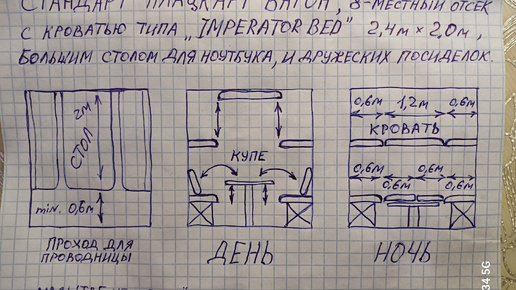 СТАНДАРТ ПЛАЦКАРТ ВАГОН, 8-МЕСТНЫЙ ОТСЕК
С КРОВАТЬЮ ТИПА „IMPERATOR BED" 2,4м × 2,0м,
БОЛЬШИМ СТОЛОМ ДЛЯ НОУТБУКА, И ДРУЖЕСКИХ ПОСИДЕЛОК.
2м
СТОЛ
min. 0,6м
ПРОХОД ДЛЯ
ПРОВОДНИЦЫ
КУПЕ
ДЕНЬ
0,6м 1,2м 0,6м
КРОВАТЬ
0,6м 0,6м
0,6м 0,6м
НОЧЬ
34 5G